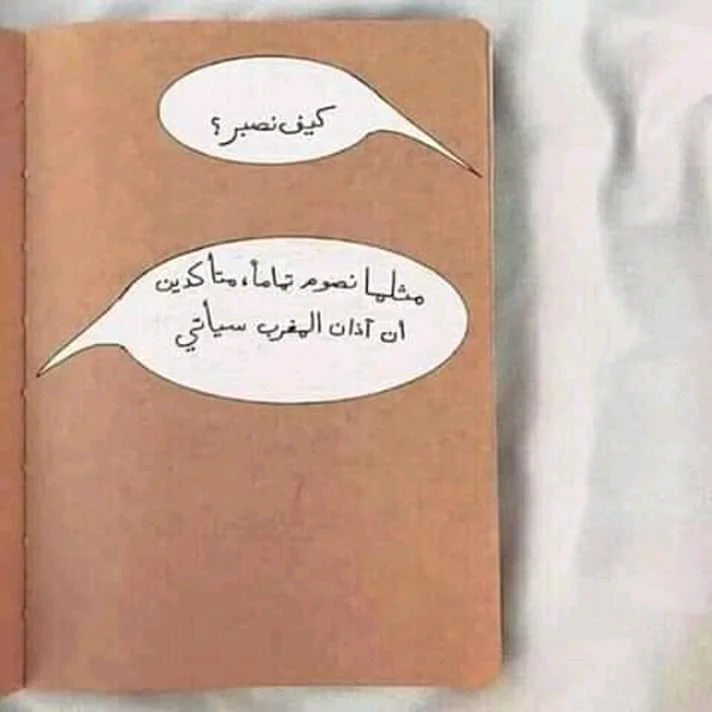 كيف نصبر ؟
مثلما نصوم تماماً، متأكدين
أن آذان المغرب سيأتي